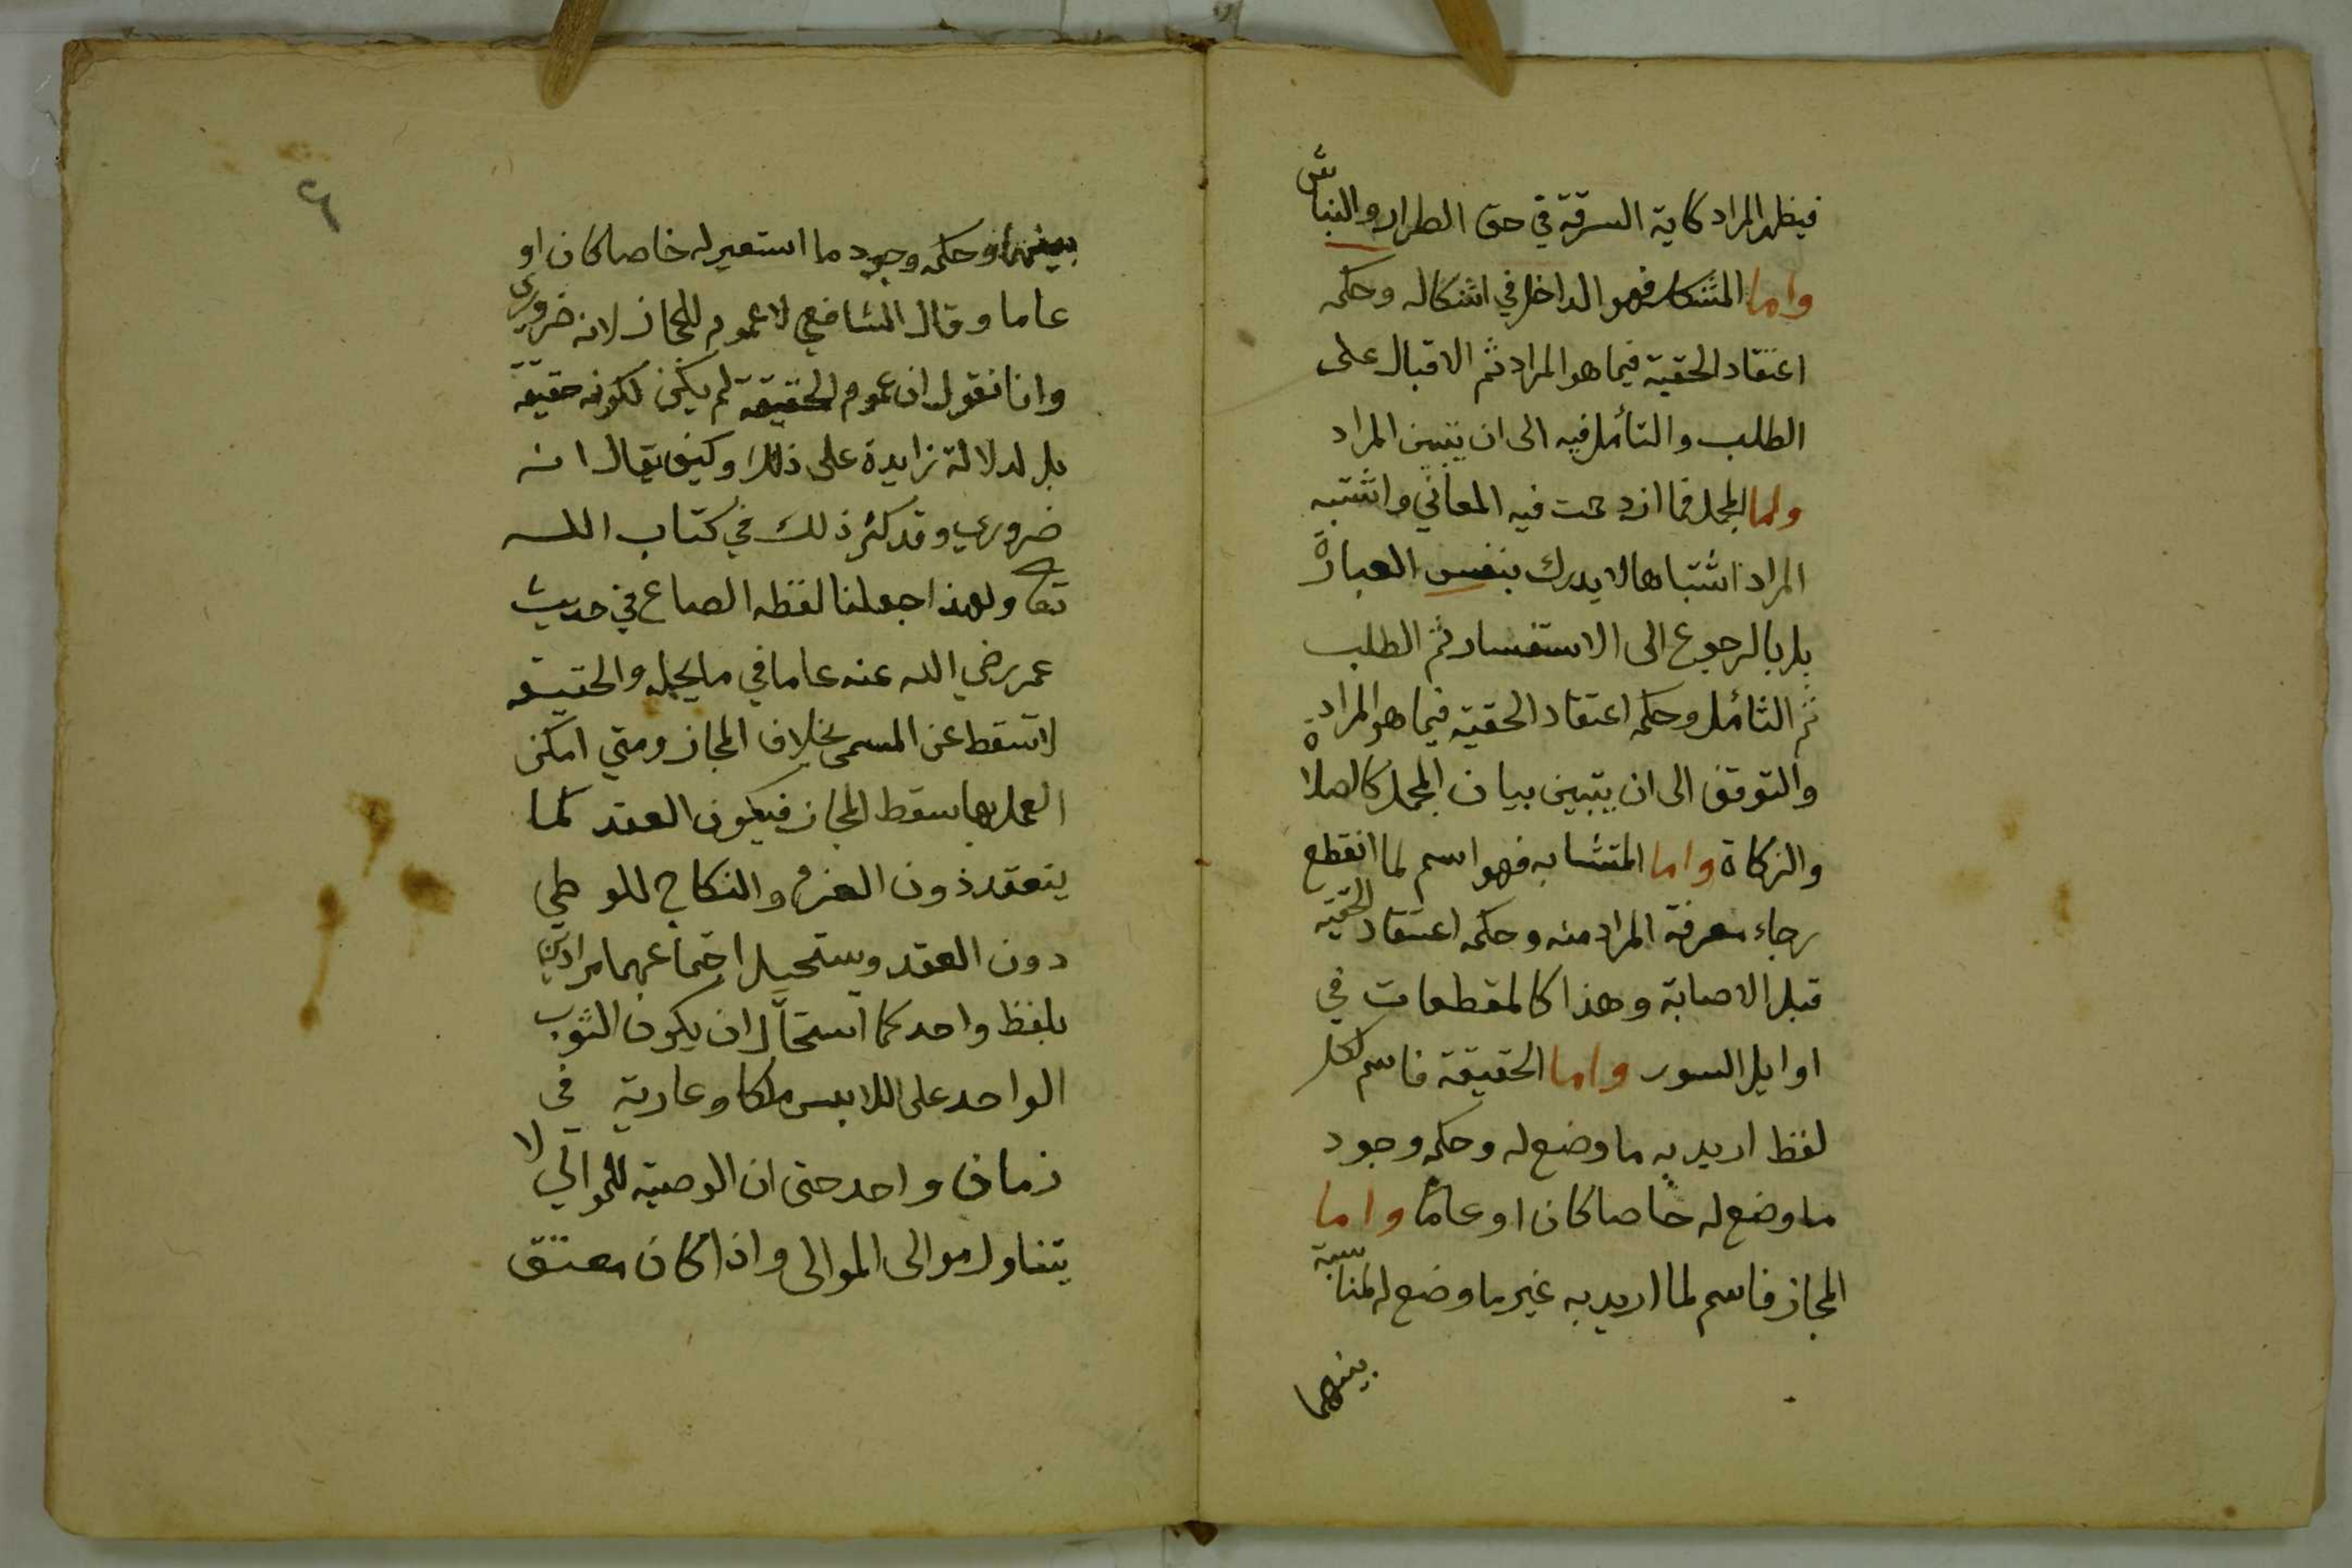 فيظهر المراد كاية السرقة في حق الطرار والنباش
واما المشكل فهو الداخل في اشكاله وحكمه
اعتقاد الحقية فيما هو المراد ثم الاقبال على
الطلب والتأمل فيه الى ان يتبين المراد
واما المجمل فما ازدحمت فيه المعاني واشتبه
المراد اشتباها لا يدرك بنفس العبارة
بل بالرجوع الى الاستفسار ثم الطلب
ثم التأمل وحكمه اعتقاد الحقية فيما هو المراد
والتوقف الى ان يتبين بيان المجمل كالصلاة
والزكاة واما المتشابه فهو اسم لما انقطع
رجاء معرفة المراد منه وحكمه اعتقاد الحقية
قبل الاصابة وهذا كالمقطعات في
اوايل السور واما الحقيقة فاسم لكل
لفظ اريد به ما وضع له وحكمه وجود
ما وضع له خاصا كان او عاما واما
المجاز فاسم لما اريد به غير ما وضع له لمناسبة
بينهما
٦
بينهما وحكمه وجود ما استعير له خاصا كان او
عاما وقال الشافعي لا عموم للمجاز لانه ضروري
وانا نقول ان عموم الحقيقة لم يكن لكونه حقيقة
بل لدلالة زايدة على ذلك وكيف يقال انه
ضروري وقد كثر ذلك في كتاب الله
تعا ولهذا جعلنا لفظه الصاع في حديث
عمر رضي الله عنه عاما في ما يحله والحقيقه
لا تسقط عن المسمى بخلاف المجاز ومتي امكن
العمل بها سقط المجاز فيكون العقد كما
ينعقد ذون العزم والنكاح للوطي
دون العقد ويستحيل اجتماعهما مرادين
بلفظ واحد كما استحال ان يكون الثوب
الواحد على اللابس ملكا وعارية في
زمان واحد حتى ان الوصية للموالي لا
يتناول موالى الموالى واذا كان معتق